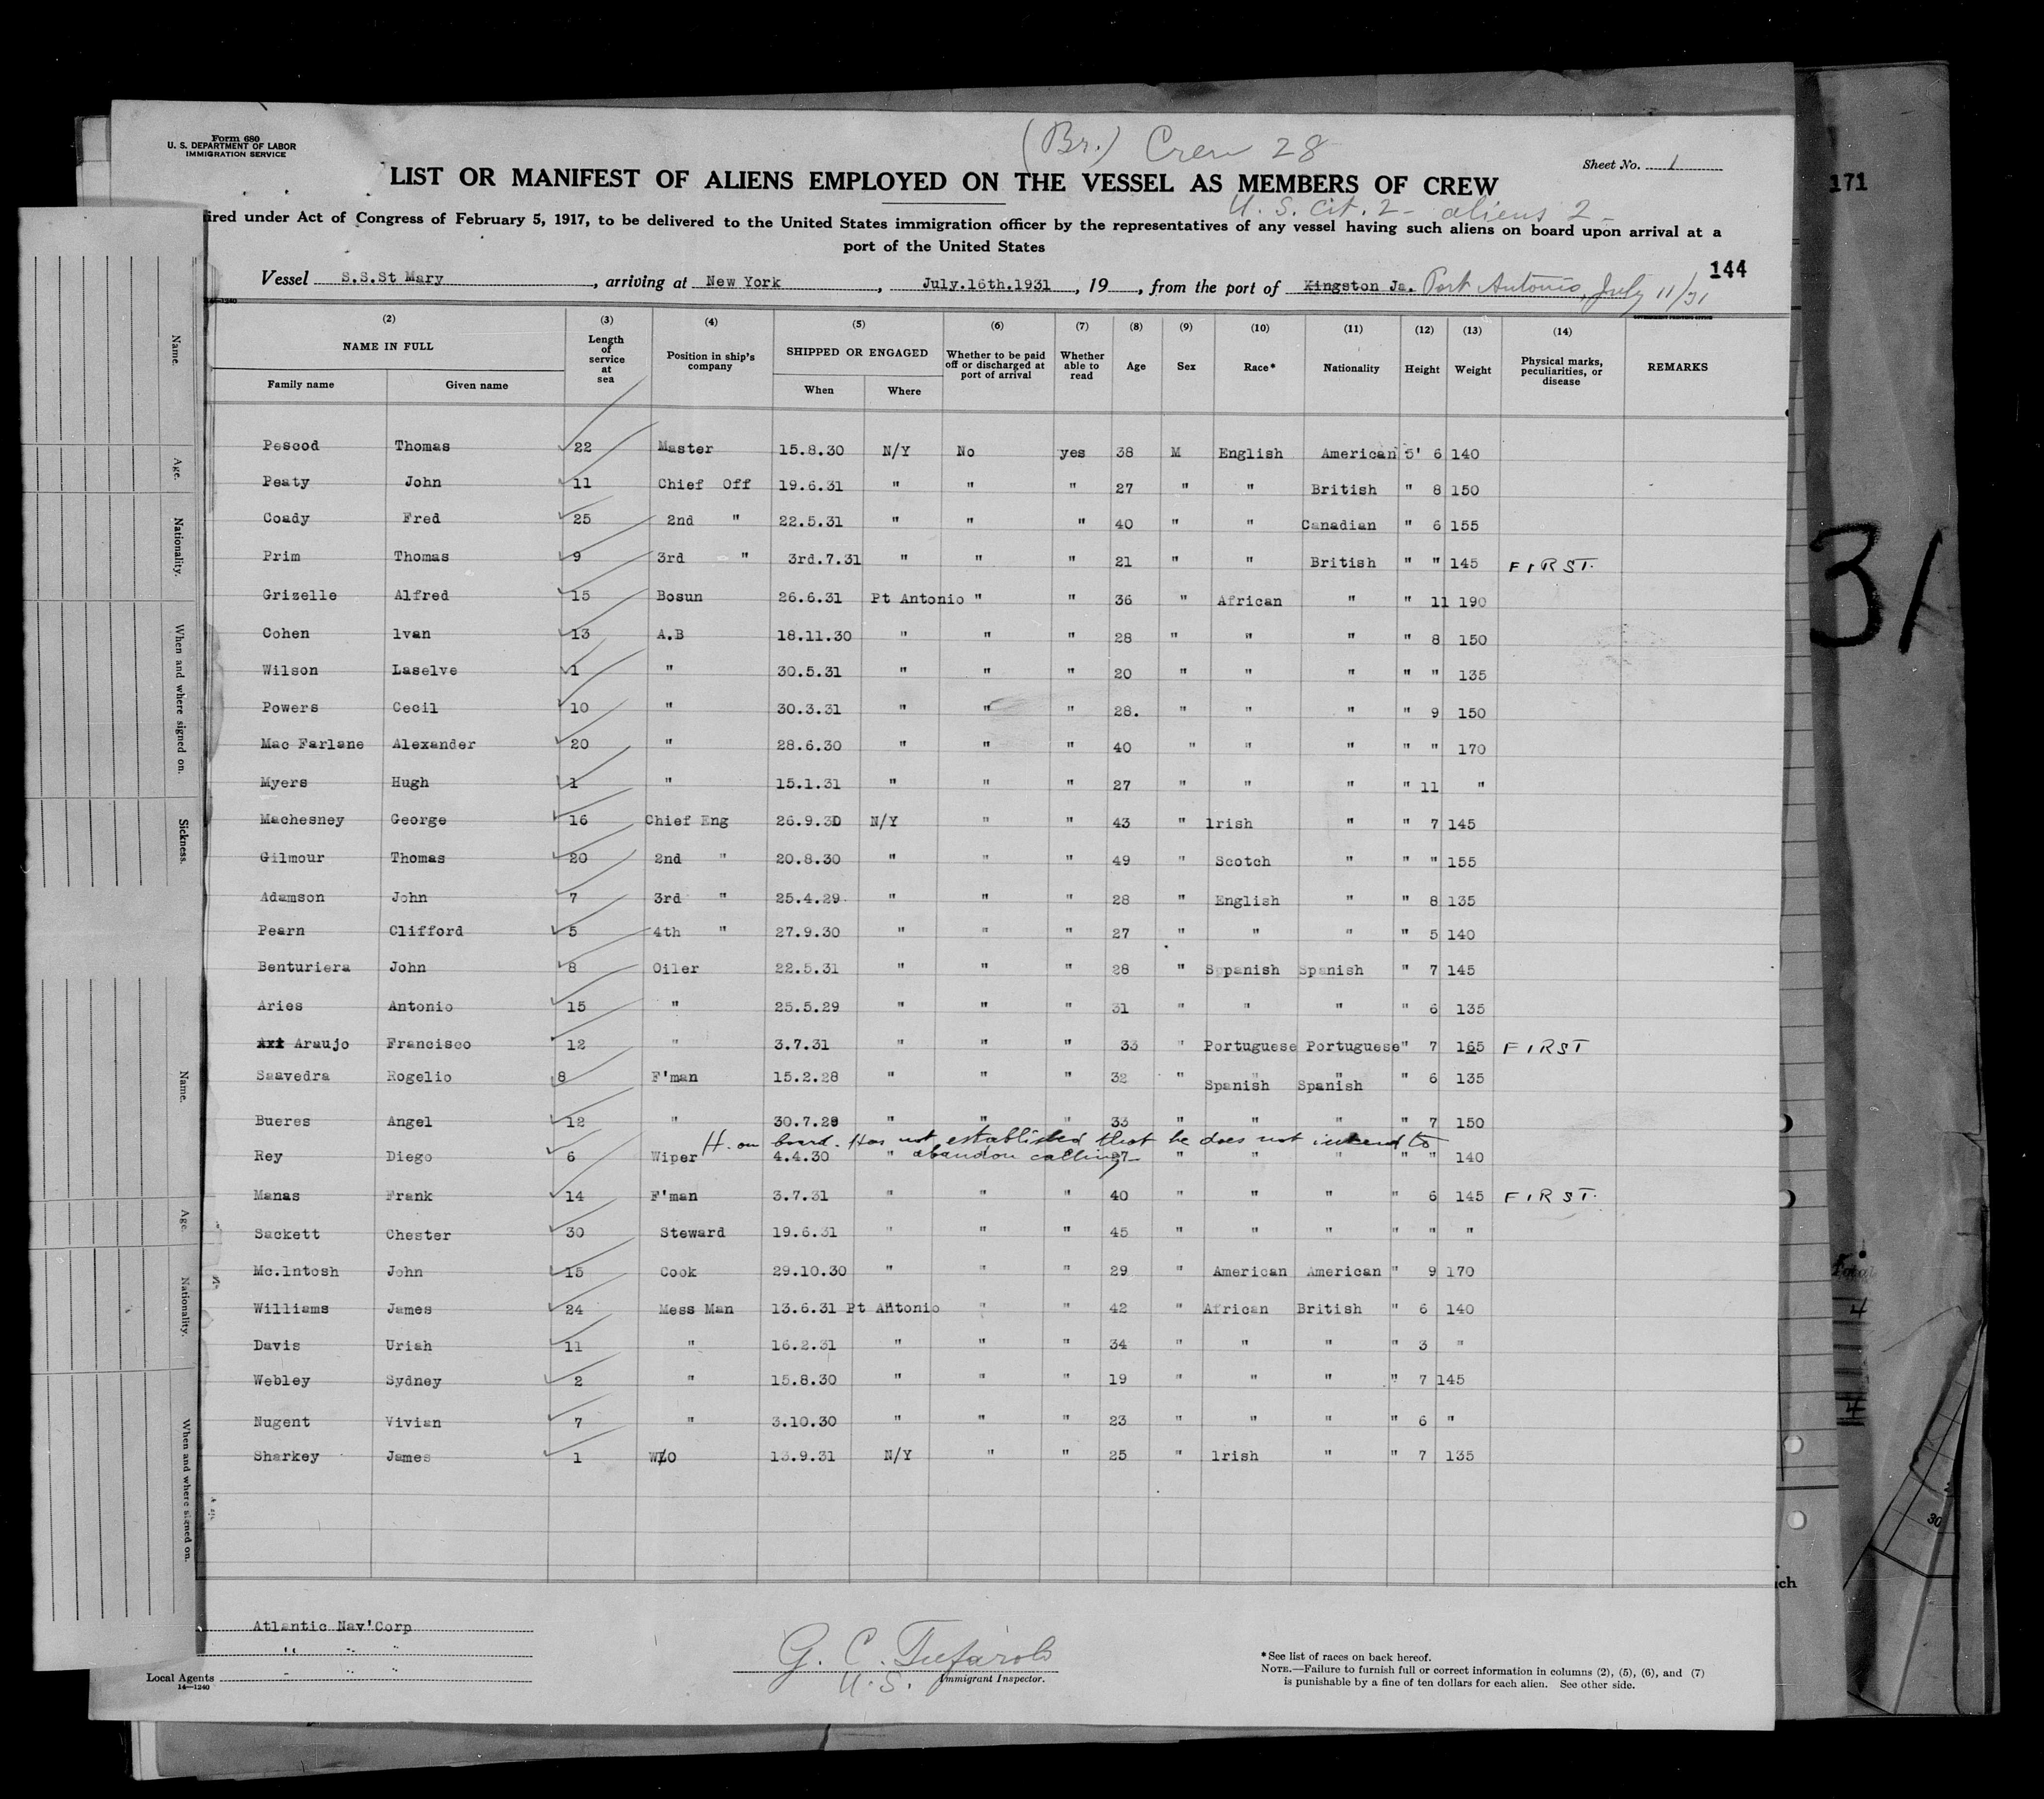 Form 680
U. S. DEPARTMENT OF LABOR
IMMIGRATION SERVICE
(Br.) Crew 28
Sheet No. 1
171
LIST OR MANIFEST OF ALIENS EMPLOYED ON THE VESSEL AS MEMBERS OF CREW
U. S. Cit. 2 - aliens 2 -
ired under Act of Congress of February 5, 1917, to be delivered to the United States immigration officer by the representatives of any vessel having such aliens on board upon arrival at a
port of the United States
144
Vessel S.S.St Mary, arriving at New York, July.16th.1931, 19, from the port of Kingston Ja. Port Antonio, July 11/31
14-1240
(2) (3) (4) (5) (6) (7) (8) (9) (10) (11) (12) (13) (14)
NAME IN FULL Length of service at sea Position in ship's company SHIPPED OR ENGAGED Whether to be paid off or discharged at port of arrival Whether able to read Age Sex Race* Nationality Height Weight Physical marks, peculiarities, or disease REMARKS
Family name Given name When Where
Pescod Thomas 22 Master 15.8.30 N/Y No yes 38 M English American 5' 6 140
Peaty John 11 Chief Off 19.6.31 " " " 27 " " British " 8 150
Coady Fred 25 2nd " 22.5.31 " " " 40 " " Canadian " 6 155
Prim Thomas 9 3rd " 3rd.7.31 " " " 21 " " British " " 145 FIRST.
Grizelle Alfred 15 Bosun 26.6.31 Pt Antonio " " 36 " African " " 11 190
Cohen lvan 13 A.B 18.11.30 " " " 28 " " " " 8 150
Wilson Laselve 1 " 30.5.31 " " " 20 " " " " " 135
Powers Cecil 10 " 30.3.31 " " " 28. " " " " 9 150
Mac Farlane Alexander 20 " 28.6.30 " " " 40 " " " " " 170
Myers Hugh 1 " 15.1.31 " " " 27 " " " " 11 "
Machesney George 16 Chief Eng 26.9.30 N/Y " " 43 " lrish " " 7 145
Gilmour Thomas 20 2nd " 20.8.30 " " " 49 " Scotch " " " 155
Adamson John 7 3rd " 25.4.29 " " " 28 " English " " 8 135
Pearn Clifford 5 4th " 27.9.30 " " " 27 " " " " 5 140
Benturiera John 8 Oiler 22.5.31 " " " 28 " Sppanish Spanish " 7 145
Aries Antonio 15 " 25.5.29 " " " 31 " " " " 6 135
Axt Araujo Francisco 12 " 3.7.31 " " " 33 " Portuguese Portuguese " 7 165 FIRST
Saavedra Rogelio 8 F'man 15.2.28 " " " 32 " Spanish Spanish " 6 135
Bueres Angel 12 " 30.7.29 " " " 33 " " " " 7 150
H. on board. Has not established that he does not intend to
abandon calling
Rey Diego 6 Wiper 4.4.30 " 27 " " " " " 140
Manas Frank 14 F'man 3.7.31 " " " 40 " " " " 6 145 FIRST.
Sackett Chester 30 Steward 19.6.31 " " " 45 " " " " " "
Mc.lntosh John 15 Cook 29.10.30 " " " 29 " American American " 9 170
Williams James 24 Mess Man 13.6.31 Pt Antonio " " 42 " African British " 6 140
Davis Uriah 11 " 16.2.31 " " " 34 " " " " 3 "
Webley Sydney 2 " 15.8.30 " " " 19 " " " " 7 145
Nugent Vivian 7 " 3.10.30 " " " 23 " " " " 6 "
Sharkey James 1 W/O 13.9.31 N/Y " " 25 " lrish " " 7 135
Atlantic Nav'Corp
" " "
Local Agents
14—1240
G. C. Tufarolo
U. S. Immigrant Inspector.
*See list of races on back hereof.
NOTE.—Failure to furnish full or correct information in columns (2), (5), (6), and (7)
is punishable by a fine of ten dollars for each alien. See other side.
Name.
Age.
Nationality.
When and where signed on.
Sickness.
Name.
Age.
Nationality.
When and where signed on.
31
Total
4
4
30
ch